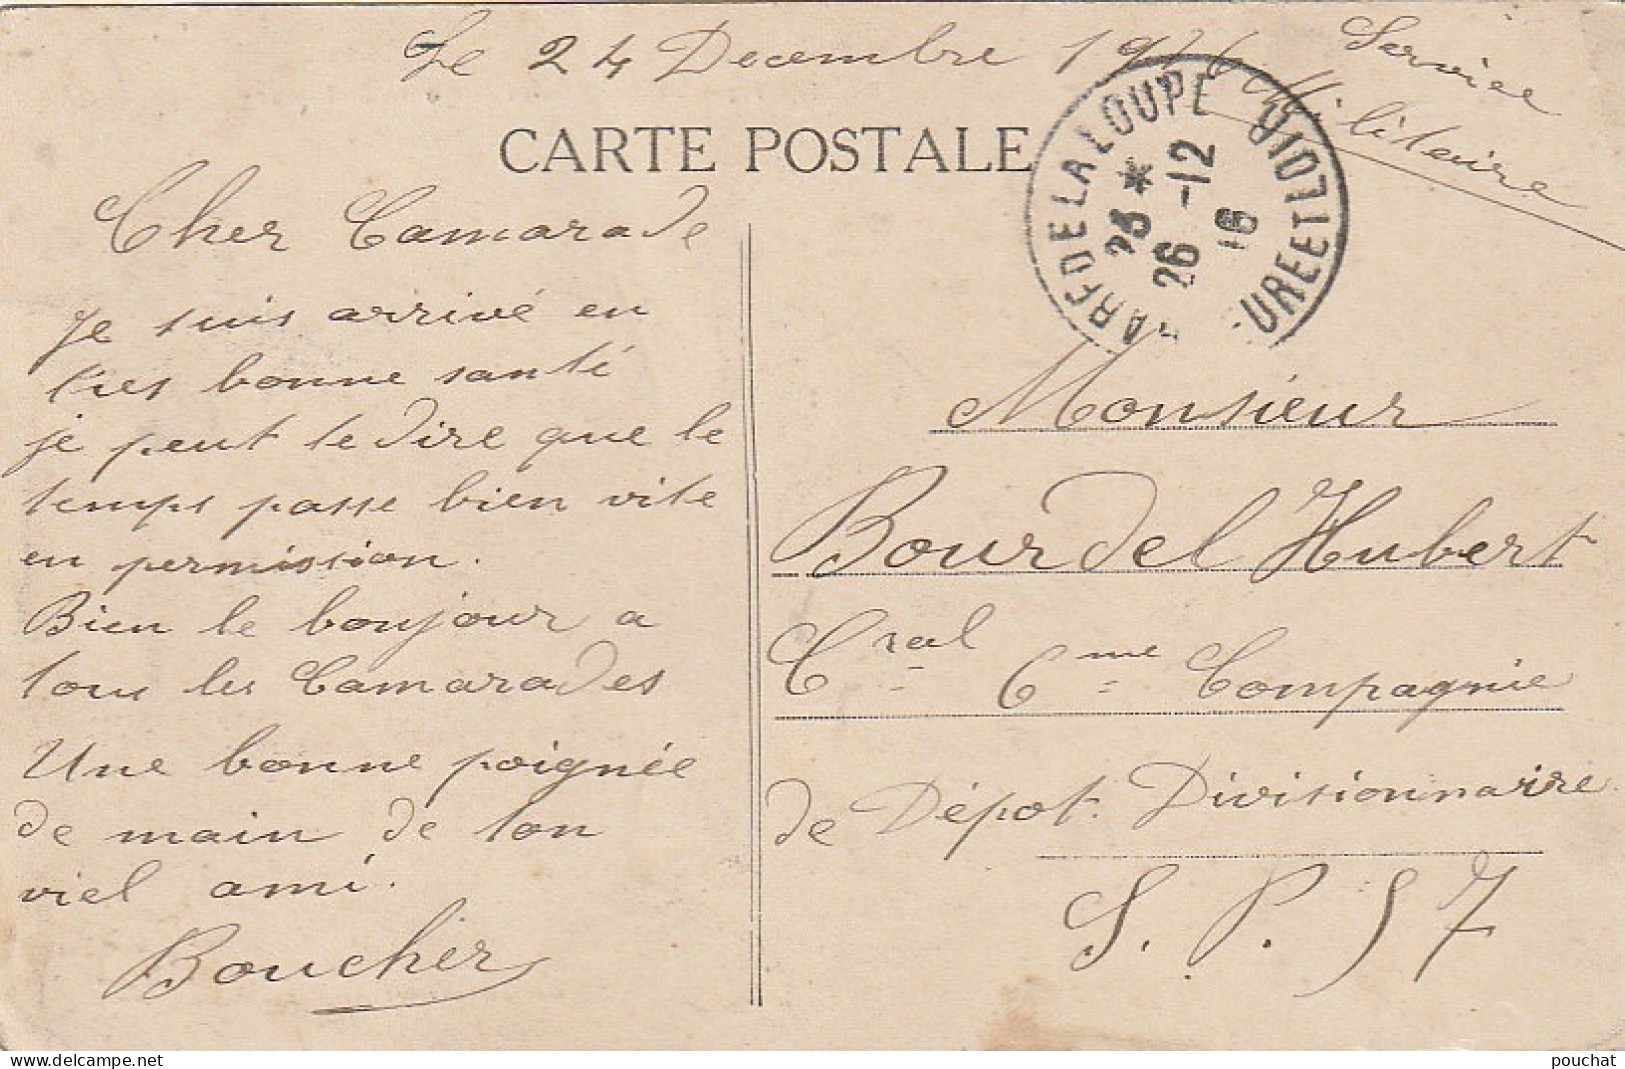 Le 24 Decembre 1916
Service
Militaire
CARTE POSTALE
GARE DE LA LOUPE
EURE ET LOIR
23 *
26 -12
16
Cher Camarade
Je suis arrivé en
tres bonne santé
je peut te dire que le
temps passe bien vite
en permission.
Bien le bonjour a
tous les Camarades
Une bonne poignée
de main de ton
viel ami.
Boucher
Monsieur
Bourdel Hubert
Cral 6me Compagnie
de Dépot. Divisionnaire
S. P. 57
pouchat